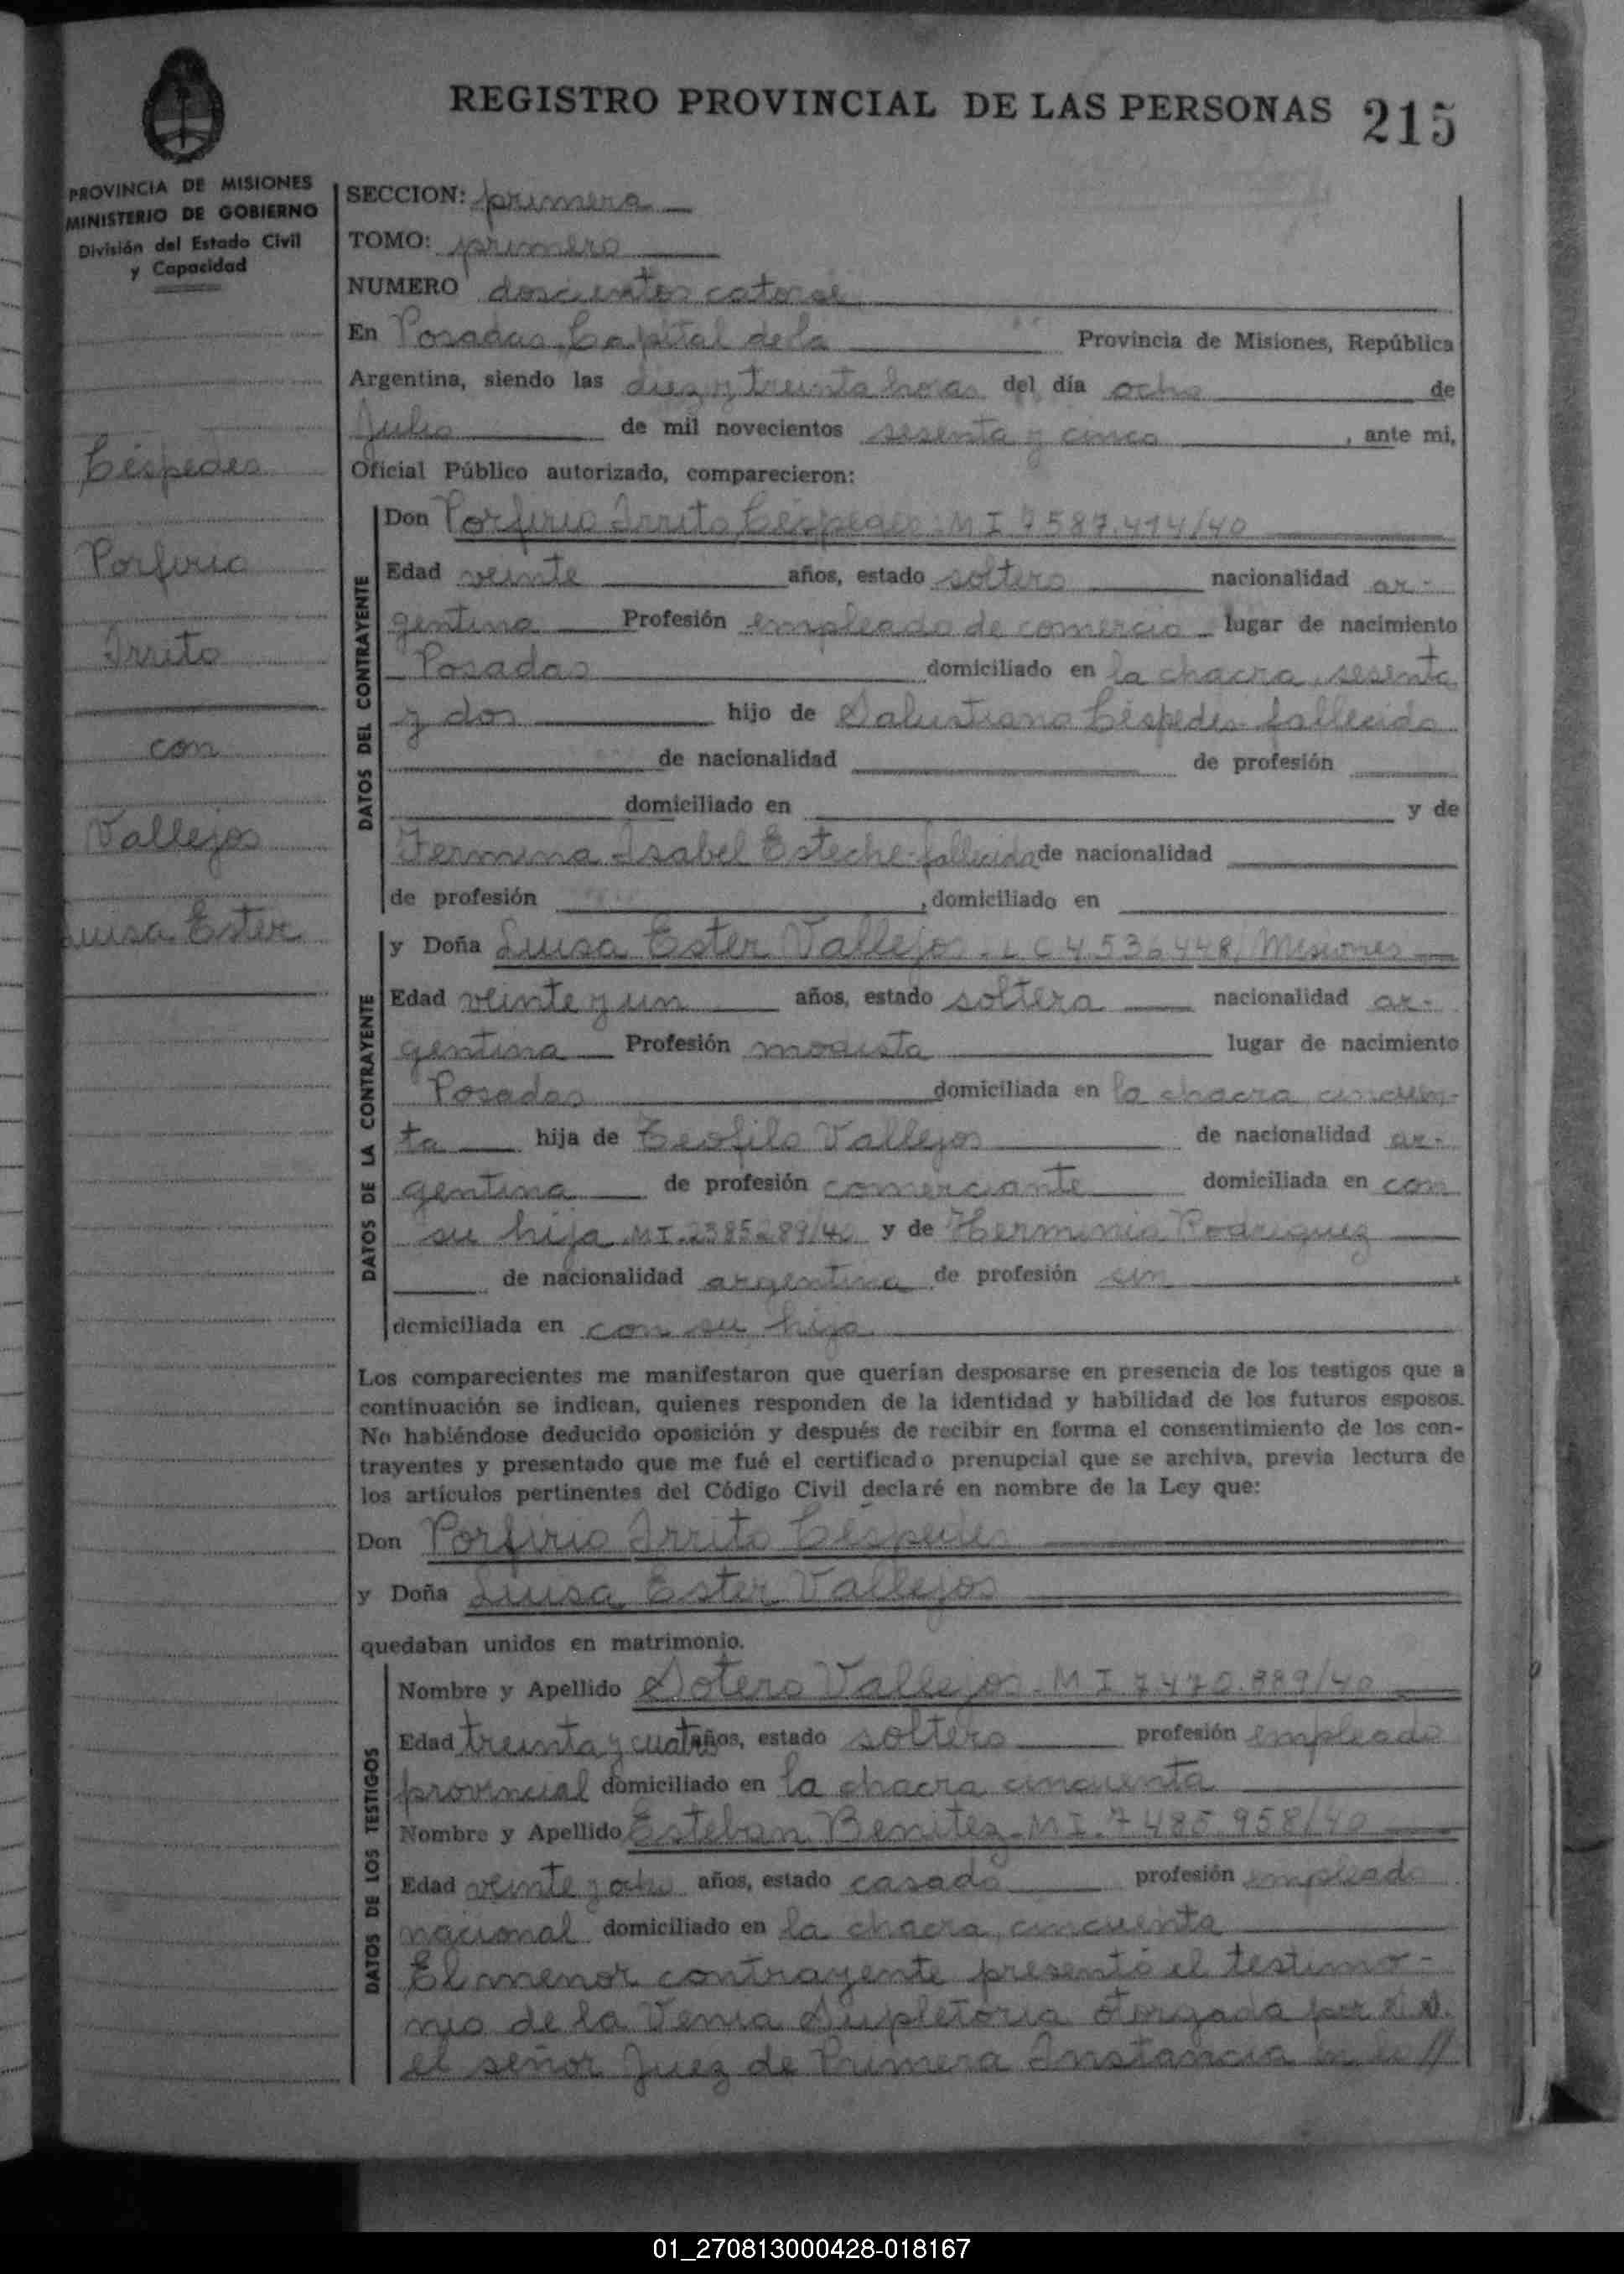 REGISTRO PROVINCIAL DE LAS PERSONAS 215
PROVINCIA DE MISIONES
MINISTERIO DE GOBIERNO
División del Estado Civil
y Capacidad
Céspedes
Porfirio
Irrito
con
Vallejos
Luisa Ester
SECCION: primera
TOMO: primero
NUMERO doscientos catorce
En Posadas Capital de la Provincia de Misiones, República
Argentina, siendo las diez y treinta horas del día ocho de
Julio de mil novecientos sesenta y cinco, ante mi,
Oficial Público autorizado, comparecieron:
DATOS DEL CONTRAYENTE
Don Porfirio Irrito Céspedes M I 7587.474/40
Edad veinte años, estado soltero nacionalidad ar-
gentina Profesión empleado de comercio lugar de nacimiento
Posadas domiciliado en la chacra sesenta
y dos hijo de Salustiano Céspedes fallecido
de nacionalidad de profesión
domiciliado en y de
Fermina Isabel Esteche fallecida de nacionalidad
de profesión , domiciliado en
DATOS DE LA CONTRAYENTE
y Doña Luisa Ester Vallejos. L C 4.536448/Misiones
Edad veinte y un años, estado soltera nacionalidad ar-
gentina Profesión modista lugar de nacimiento
Posadas domiciliada en la chacra cincuen-
ta hija de Teofilo Vallejos de nacionalidad ar-
gentina de profesión comerciante domiciliada en con
su hija M I. 2385289/40 y de Herminia Rodriguez
de nacionalidad argentina de profesión sin
domiciliada en con su hija
Los comparecientes me manifestaron que querían desposarse en presencia de los testigos que a
continuación se indican, quienes responden de la identidad y habilidad de los futuros esposos.
No habiéndose deducido oposición y después de recibir en forma el consentimiento de los con-
trayentes y presentado que me fué el certificado prenupcial que se archiva, previa lectura de
los artículos pertinentes del Código Civil declaré en nombre de la Ley que:
Don Porfirio Irrito Céspedes
y Doña Luisa Ester Vallejos
quedaban unidos en matrimonio.
DATOS DE LOS TESTIGOS
Nombre y Apellido Sotero Vallejos M I 7.470.889/40
Edad treinta y cuatro años, estado soltero profesión empleado
provincial domiciliado en la chacra cincuenta
Nombre y Apellido Esteban Benitez M I. 7485.958/40
Edad veinte y ocho años, estado casado profesión empleado
nacional domiciliado en la chacra cincuenta
El menor contrayente presentó el testimo-
nio de la Venia Supletoria otorgada por S.S.
el señor Juez de Primera Instancia en lo //
01_270813000428-018167